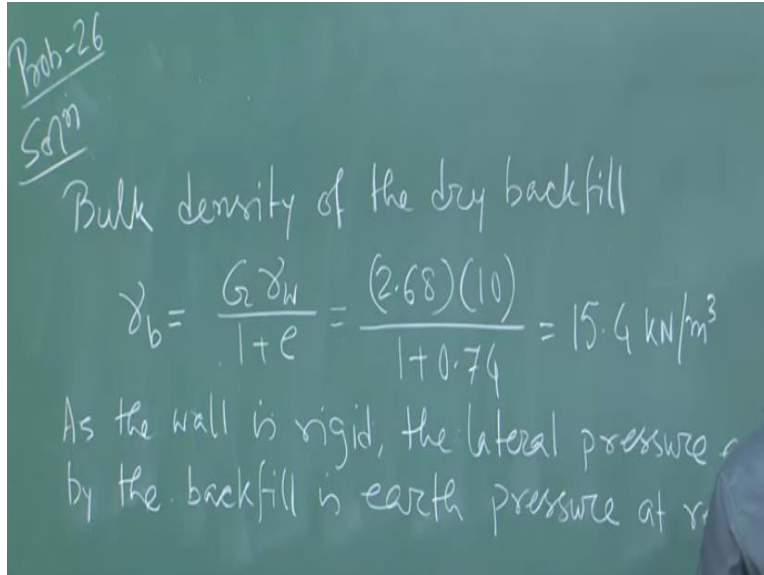 Prob-26
Solⁿ
Bulk density of the dry backfill
γ_b = Gγ_w / 1+e = (2.68)(10) / 1+0.74 = 15.4 kN/m³
As the wall is rigid, the lateral pressure
by the backfill is earth pressure at